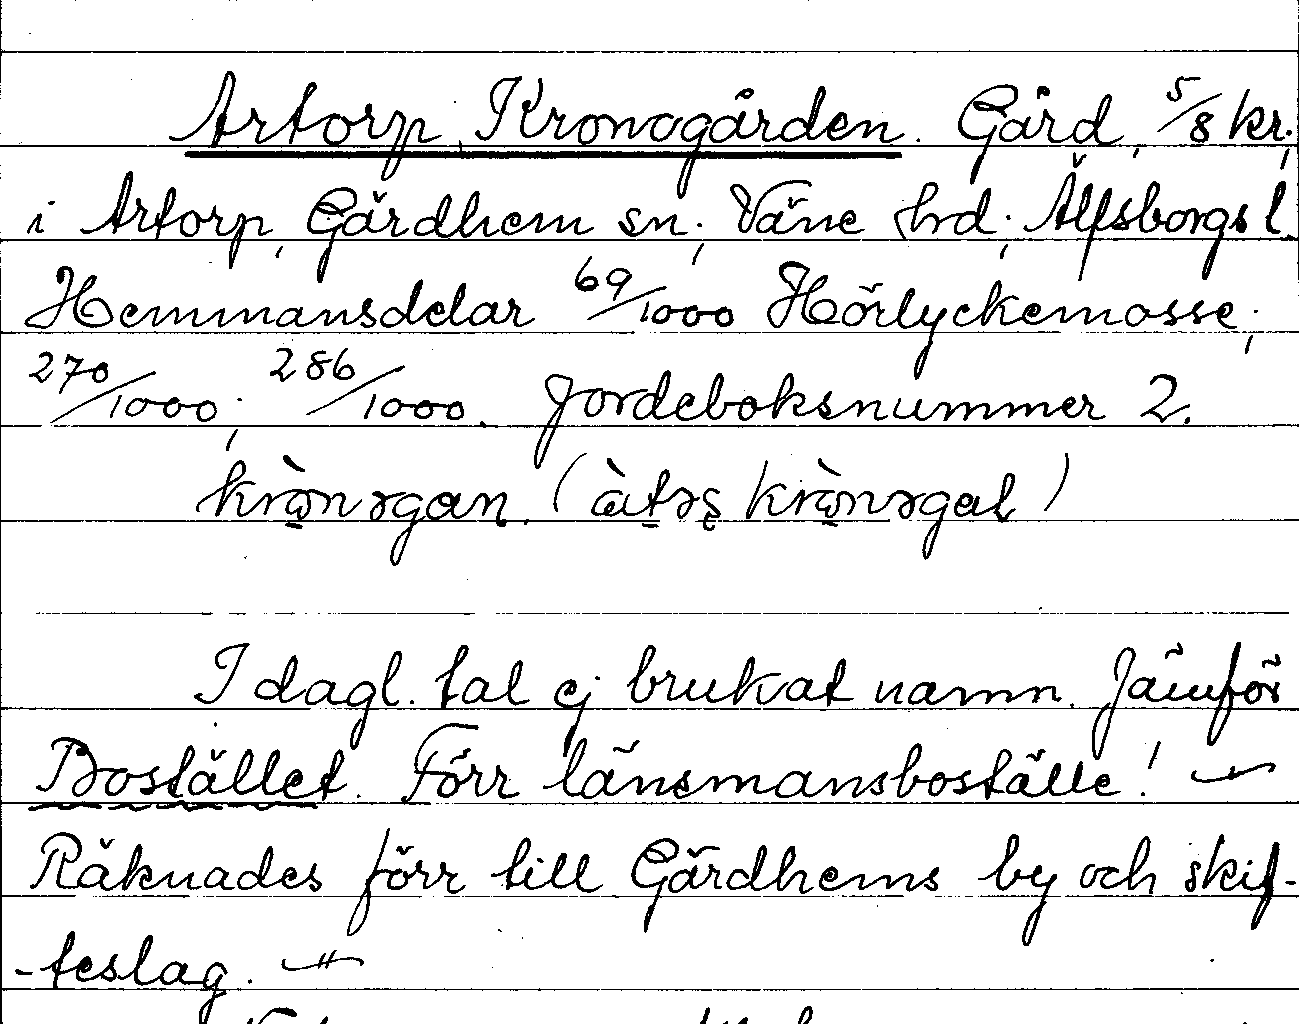 Artorp, Kronogården. Gård, 5/8 kr.,
i Artorp, Gärdhem sn; Väne hd; Älfsborgs l.
Hemmansdelar 69/1000 Hörlyckemosse;
270/1000; 286/1000. Jordeboksnummer 2.
I dagl. tal ej brukat namn. Jämför
Bostället. Förr länsmansboställe! —
Räknades förr till Gärdhems by och skif-
-teslag. —"—